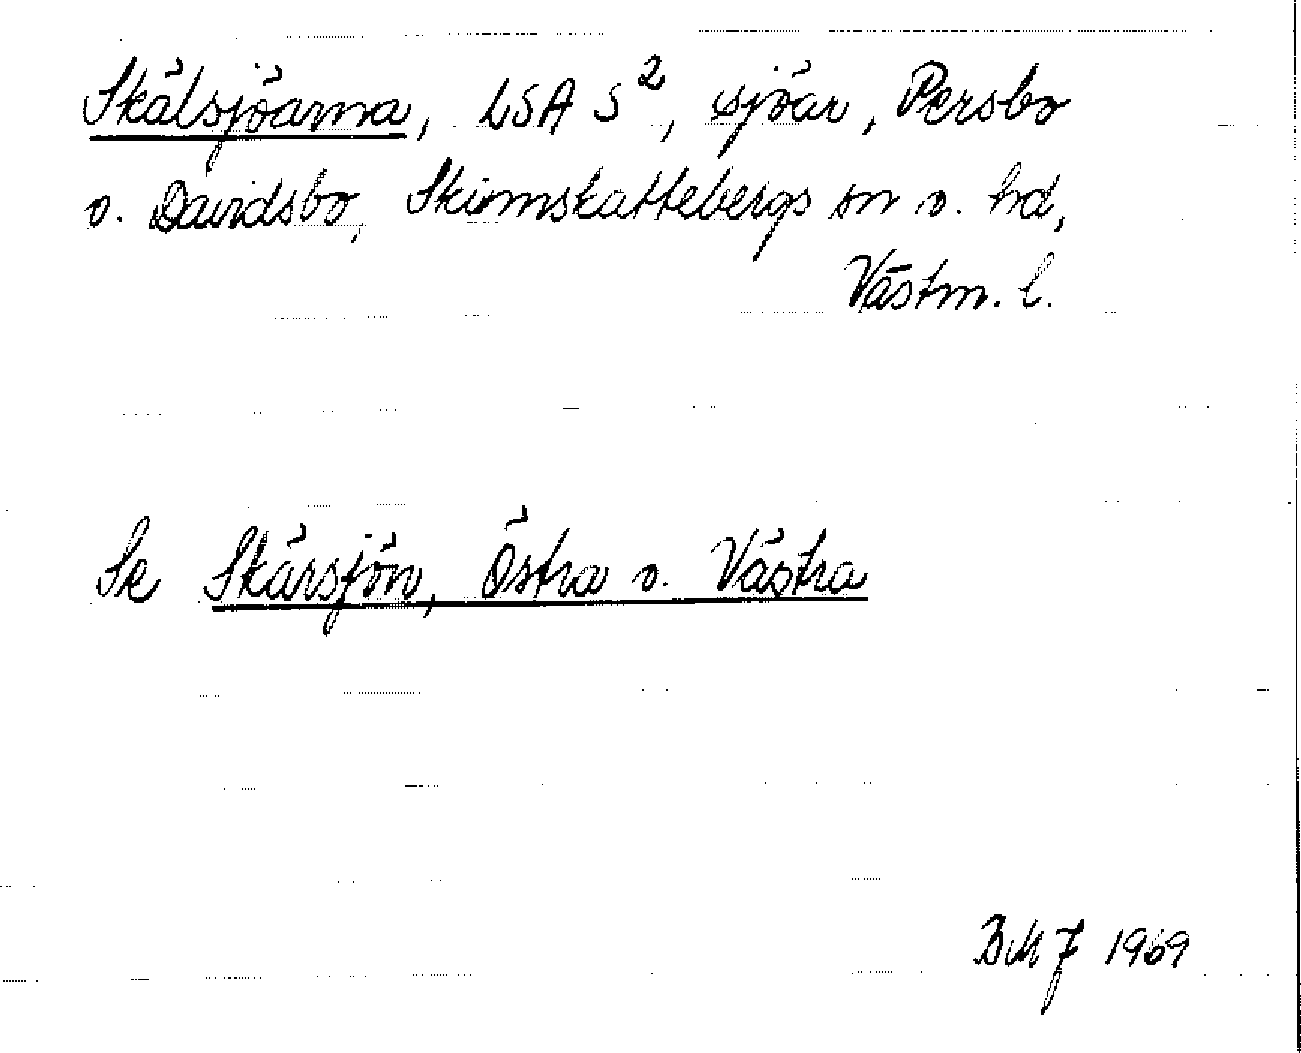 Skälsjöarna, LSA S², sjöar, Persbo
o. Davidsbo, Skinnskattebergs sn o. hd,
Västm. l.
Se Skärsjön, Östra o. Västra
BMJ 1969